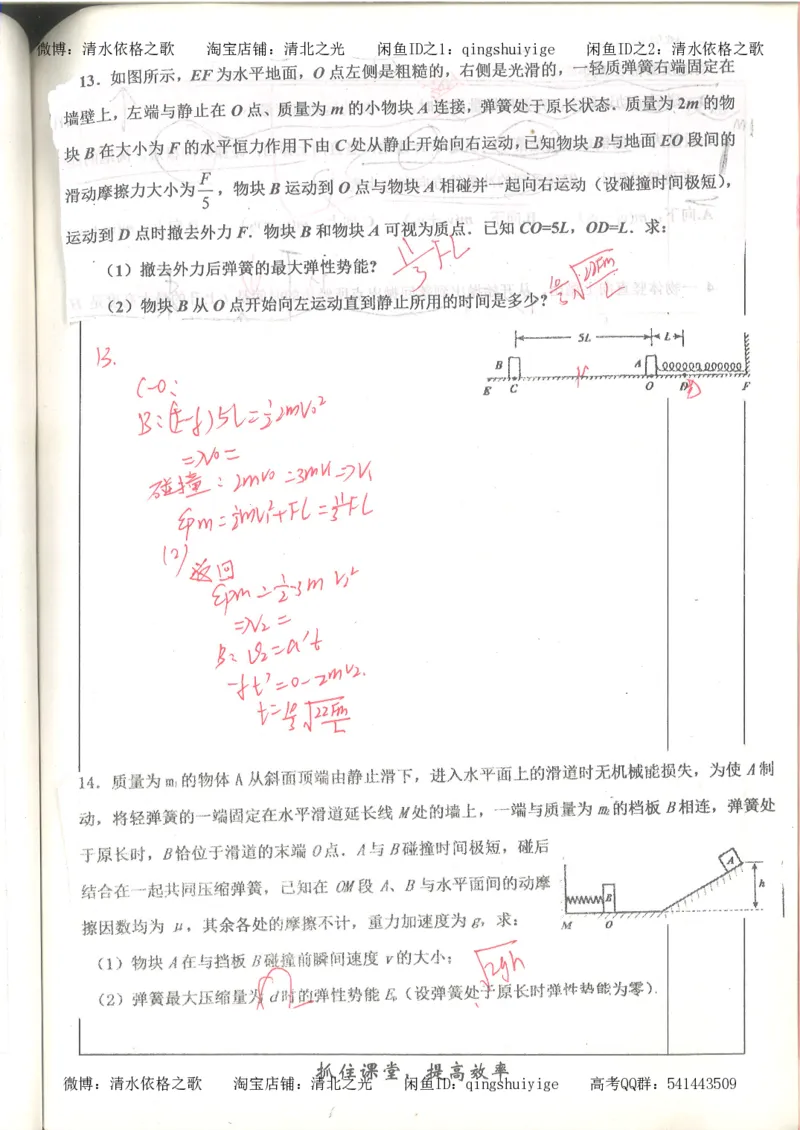 微博：清水依格之歌 淘宝店铺：清北之光 闲鱼ID之1：qingshuiyige 闲鱼ID之2：清水依格之歌
13．如图所示，EF 为水平地面，O 点左侧是粗糙的，右侧是光滑的，一轻质弹簧右端固定在
墙壁上，左端与静止在 O 点、质量为 m 的小物块 A 连接，弹簧处于原长状态．质量为 2m 的物
块 B 在大小为 F 的水平恒力作用下由 C 处从静止开始向右运动，已知物块 B 与地面 EO 段间的
滑动摩擦力大小为 F/5，物块 B 运动到 O 点与物块 A 相碰并一起向右运动（设碰撞时间极短），
运动到 D 点时撤去外力 F．物块 B 和物块 A 可视为质点．已知 CO=5L，OD=L．求：
（1）撤去外力后弹簧的最大弹性势能？ 11/3 FL
（2）物块 B 从 O 点开始向左运动直到静止所用的时间是多少？
5L L
B A
E C O D F
13.
C-O：
B：(F-f)5L=½2mv₀²
⇒v₀=
碰撞：2mv₀=3mv₁⇒v₁
Epm=½3mv₁²+FL=11/3 FL
(2)
返回
Epm=½·3mv₂²
⇒v₂=
B：v₂=a't
-ft'=0-2mv₂.
14．质量为 m₁ 的物体 A 从斜面顶端由静止滑下，进入水平面上的滑道时无机械能损失，为使 A 制
动，将轻弹簧的一端固定在水平滑道延长线 M 处的墙上，一端与质量为 m₂ 的档板 B 相连，弹簧处
于原长时，B 恰位于滑道的末端 O 点．A 与 B 碰撞时间极短，碰后
结合在一起共同压缩弹簧，已知在 OM 段 A、B 与水平面间的动摩
擦因数均为 μ，其余各处的摩擦不计，重力加速度为 g，求：
A
h
B
M O
（1）物块 A 在与挡板 B 碰撞前瞬间速度 v 的大小； √2gh
（2）弹簧最大压缩量为 d 时的弹性势能 Eₚ（设弹簧处于原长时弹性势能为零）．
抓住课堂，提高效率
微博：清水依格之歌 淘宝店铺：清北之光 闲鱼ID：qingshuiyige 高考QQ群：541443509